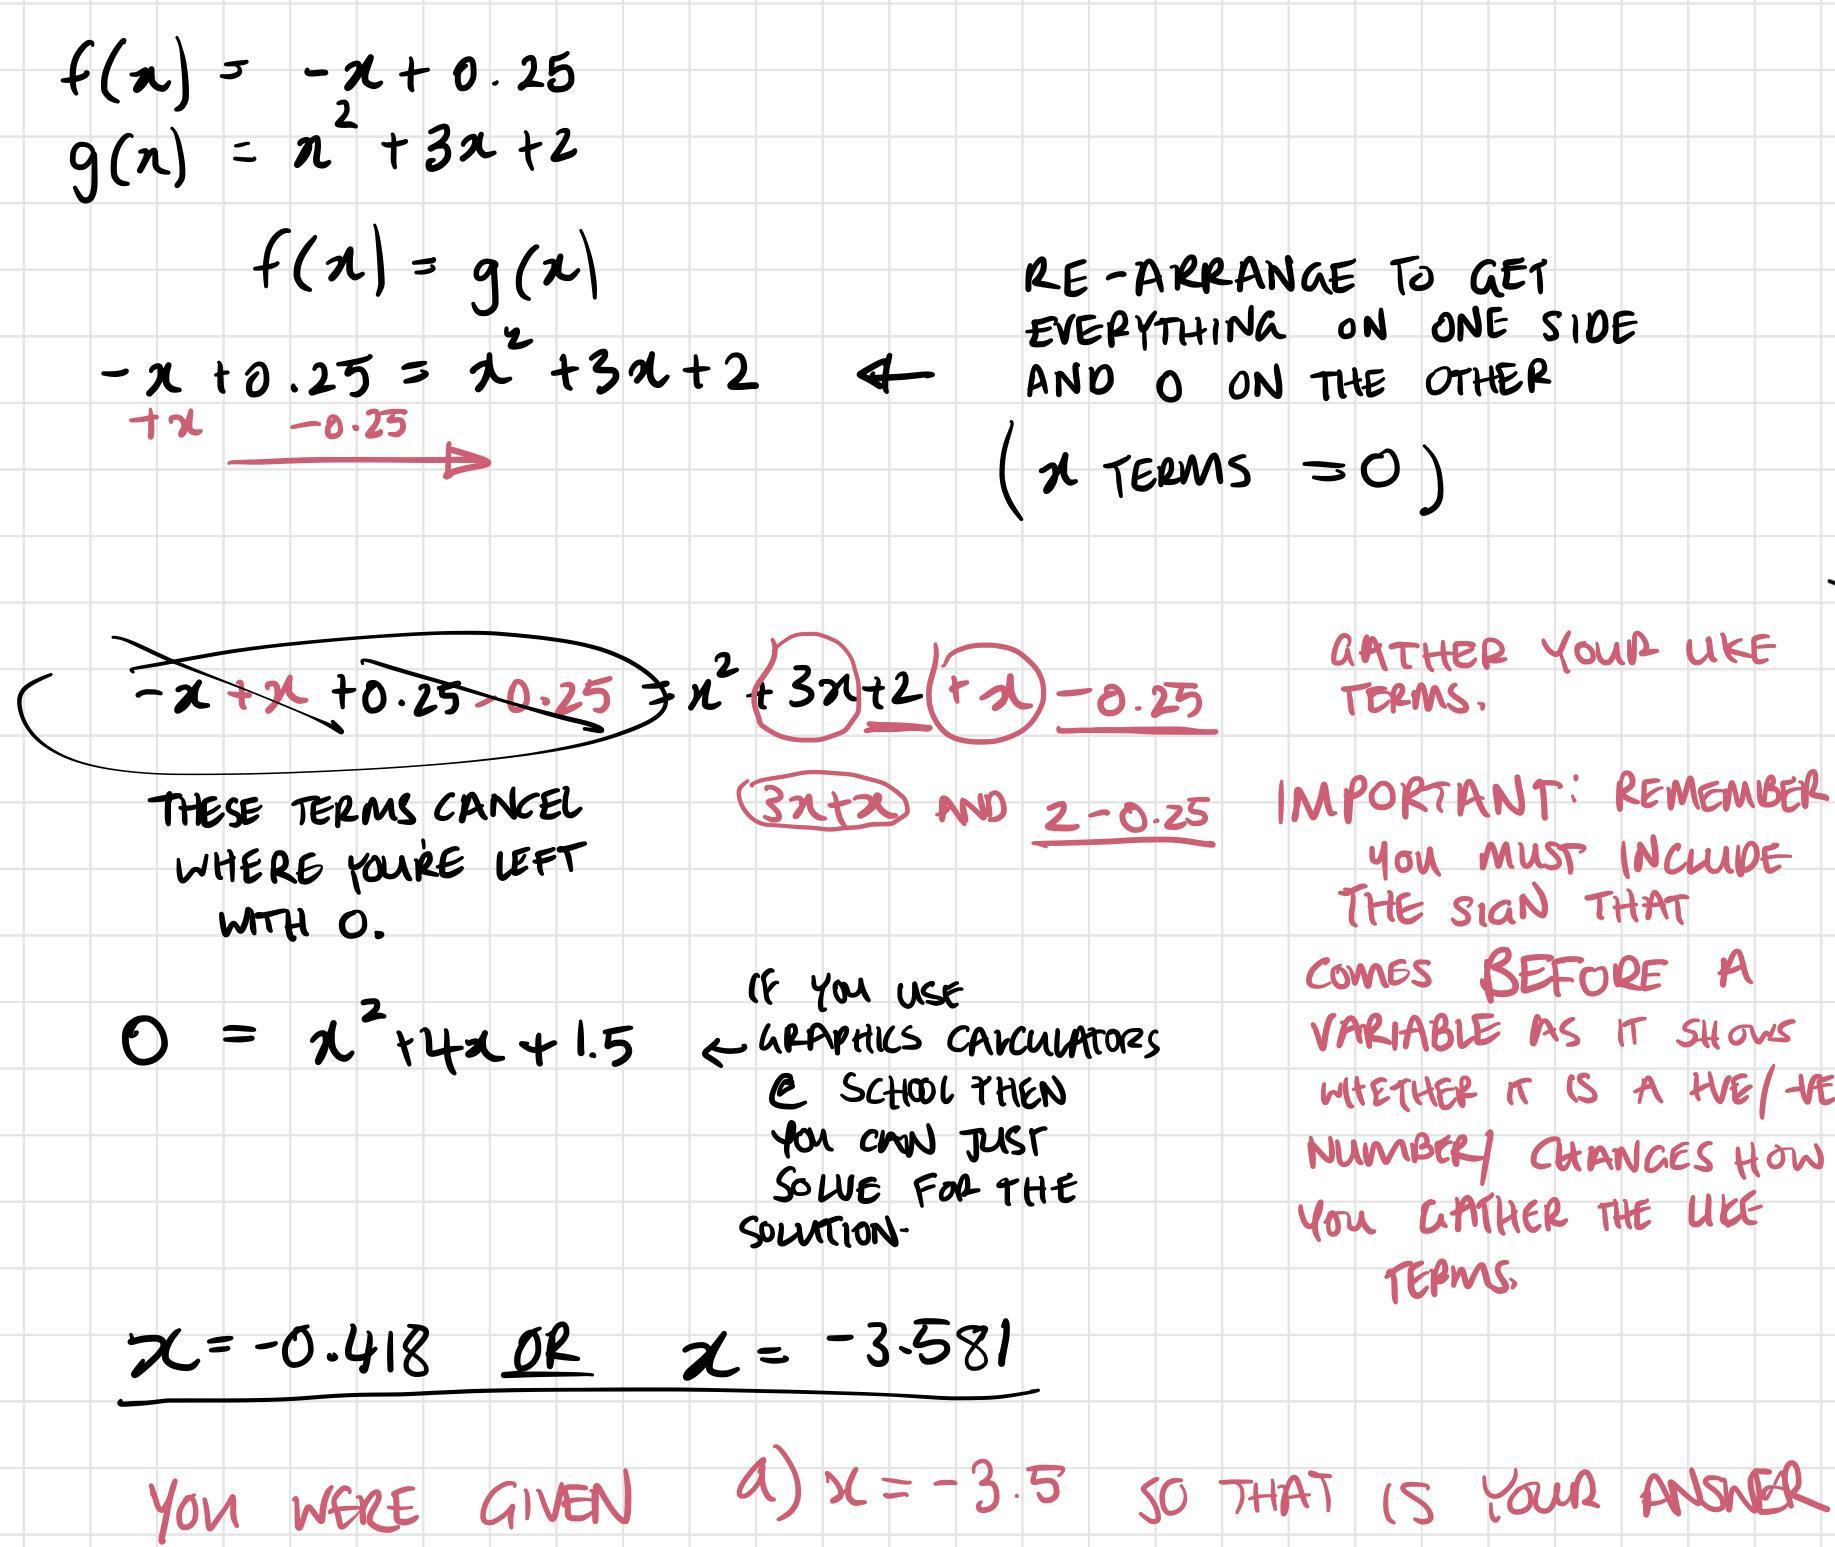 f(x) = -x + 0.25
g(x) = x² + 3x + 2
f(x) = g(x)
-x + 0.25 = x² + 3x + 2 ←
+x -0.25
RE-ARRANGE TO GET
EVERYTHING ON ONE SIDE
AND 0 ON THE OTHER
(x TERMS = 0)
-x + x + 0.25 - 0.25 = x² + 3x + 2 + x - 0.25
3x + x AND 2 - 0.25
THESE TERMS CANCEL
WHERE YOU'RE LEFT
WITH 0.
GATHER YOUR LIKE
TERMS.
IMPORTANT: REMEMBER
YOU MUST INCLUDE
THE SIGN THAT
COMES BEFORE A
VARIABLE AS IT SHOWS
WHETHER IT IS A +VE/-VE
NUMBER/ CHANGES HOW
YOU GATHER THE LIKE
TERMS.
0 = x² + 4x + 1.5
IF YOU USE
← GRAPHICS CALCULATORS
@ SCHOOL THEN
YOU CAN JUST
SOLVE FOR THE
SOLUTION.
x = -0.418 OR x = -3.581
YOU WERE GIVEN a) x = -3.5 SO THAT IS YOUR ANSWER